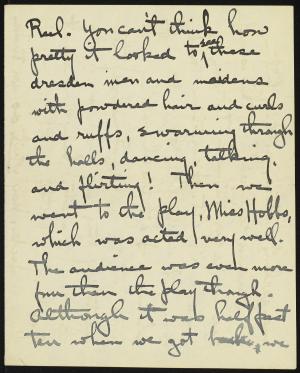 Reel. You can't think how
pretty it looked to see these
dresden men and maidens
with powdered hair and curls
and ruffs, swarming through
the halls, dancing, talking,
and flirting! Then we
went to the play, Miss Hobbs,
which was acted very well.
The audience was even more
fun than the play though.
Although it was half past
ten when we got back, we